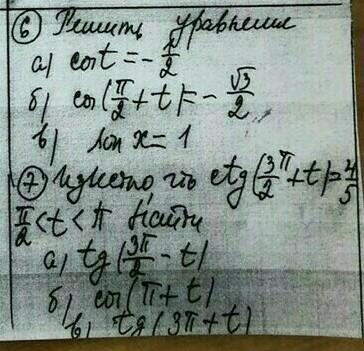 ⑥ Решить уравнения
а) cos t = -1/2
б) cos(π/2 + t) = -√3/2
в) sin x = 1
⑦ Известно что ctg(3π/2 + t) = 4/5
π/2 < t < π Найти
а) tg(3π/2 - t)
б) cos(π + t)
в) tg(3π + t)